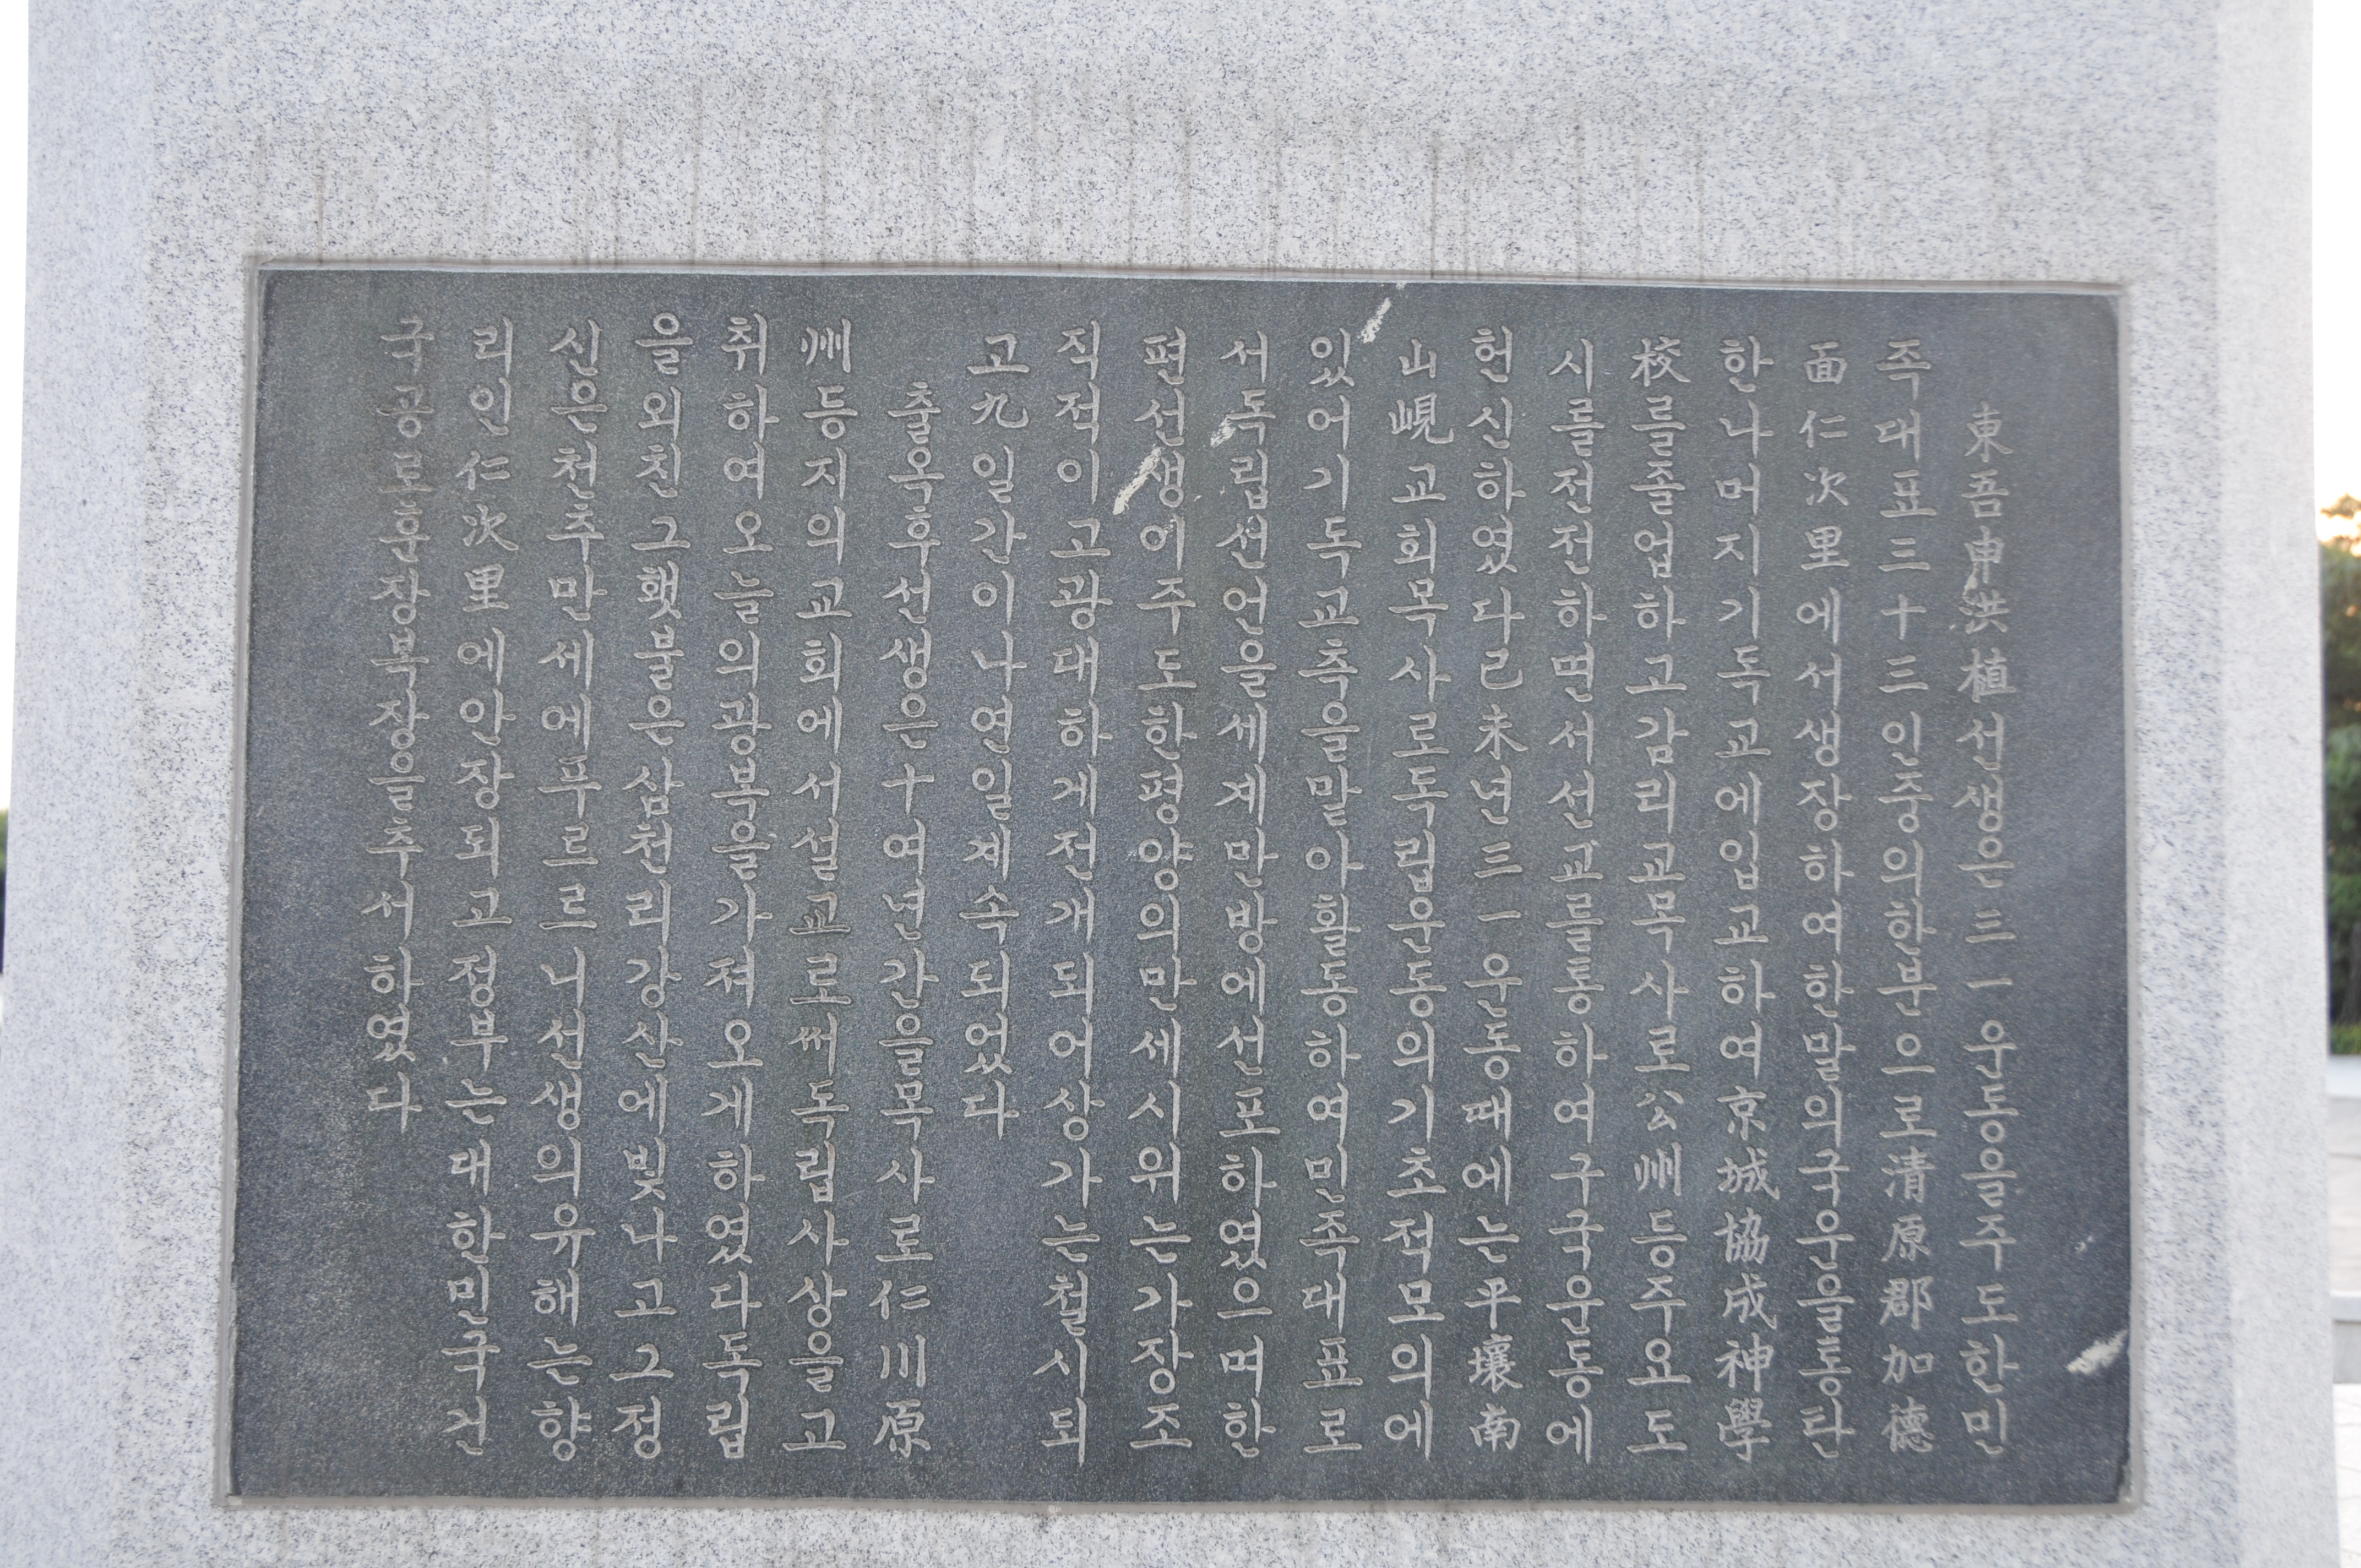 東吾申洪植선생은三一운동을주도한민
족대표三十三인중의한분으로清原郡加德
面仁次里에서생장하여한말의국운을통탄
한나머지기독교에입교하여京城協成神學
校를졸업하고감리교목사로公州등주요도
시를전전하면서선교를통하여구국운동에
헌신하였다己未년三一운동때에는平壤南
山峴교회목사로독립운동의기초적모의에
있어기독교측을말아활동하여민족대표로
서독립선언을세계만방에선포하였으며한
편선생이주도한평양의만세시위는가장조
직적이고광대하게전개되어상가는철시되
고九일간이나연일계속되었다
출옥후선생은十여년간을목사로仁川原
州등지의교회에서설교로써독립사상을고
취하여오늘의광복을가져오게하였다독립
을외친그횃불은삼천리강산에빛나고그정
신은천추만세에푸르르니선생의유해는향
리인仁次里에안장되고정부는대한민국건
국공로훈장복장을추서하였다